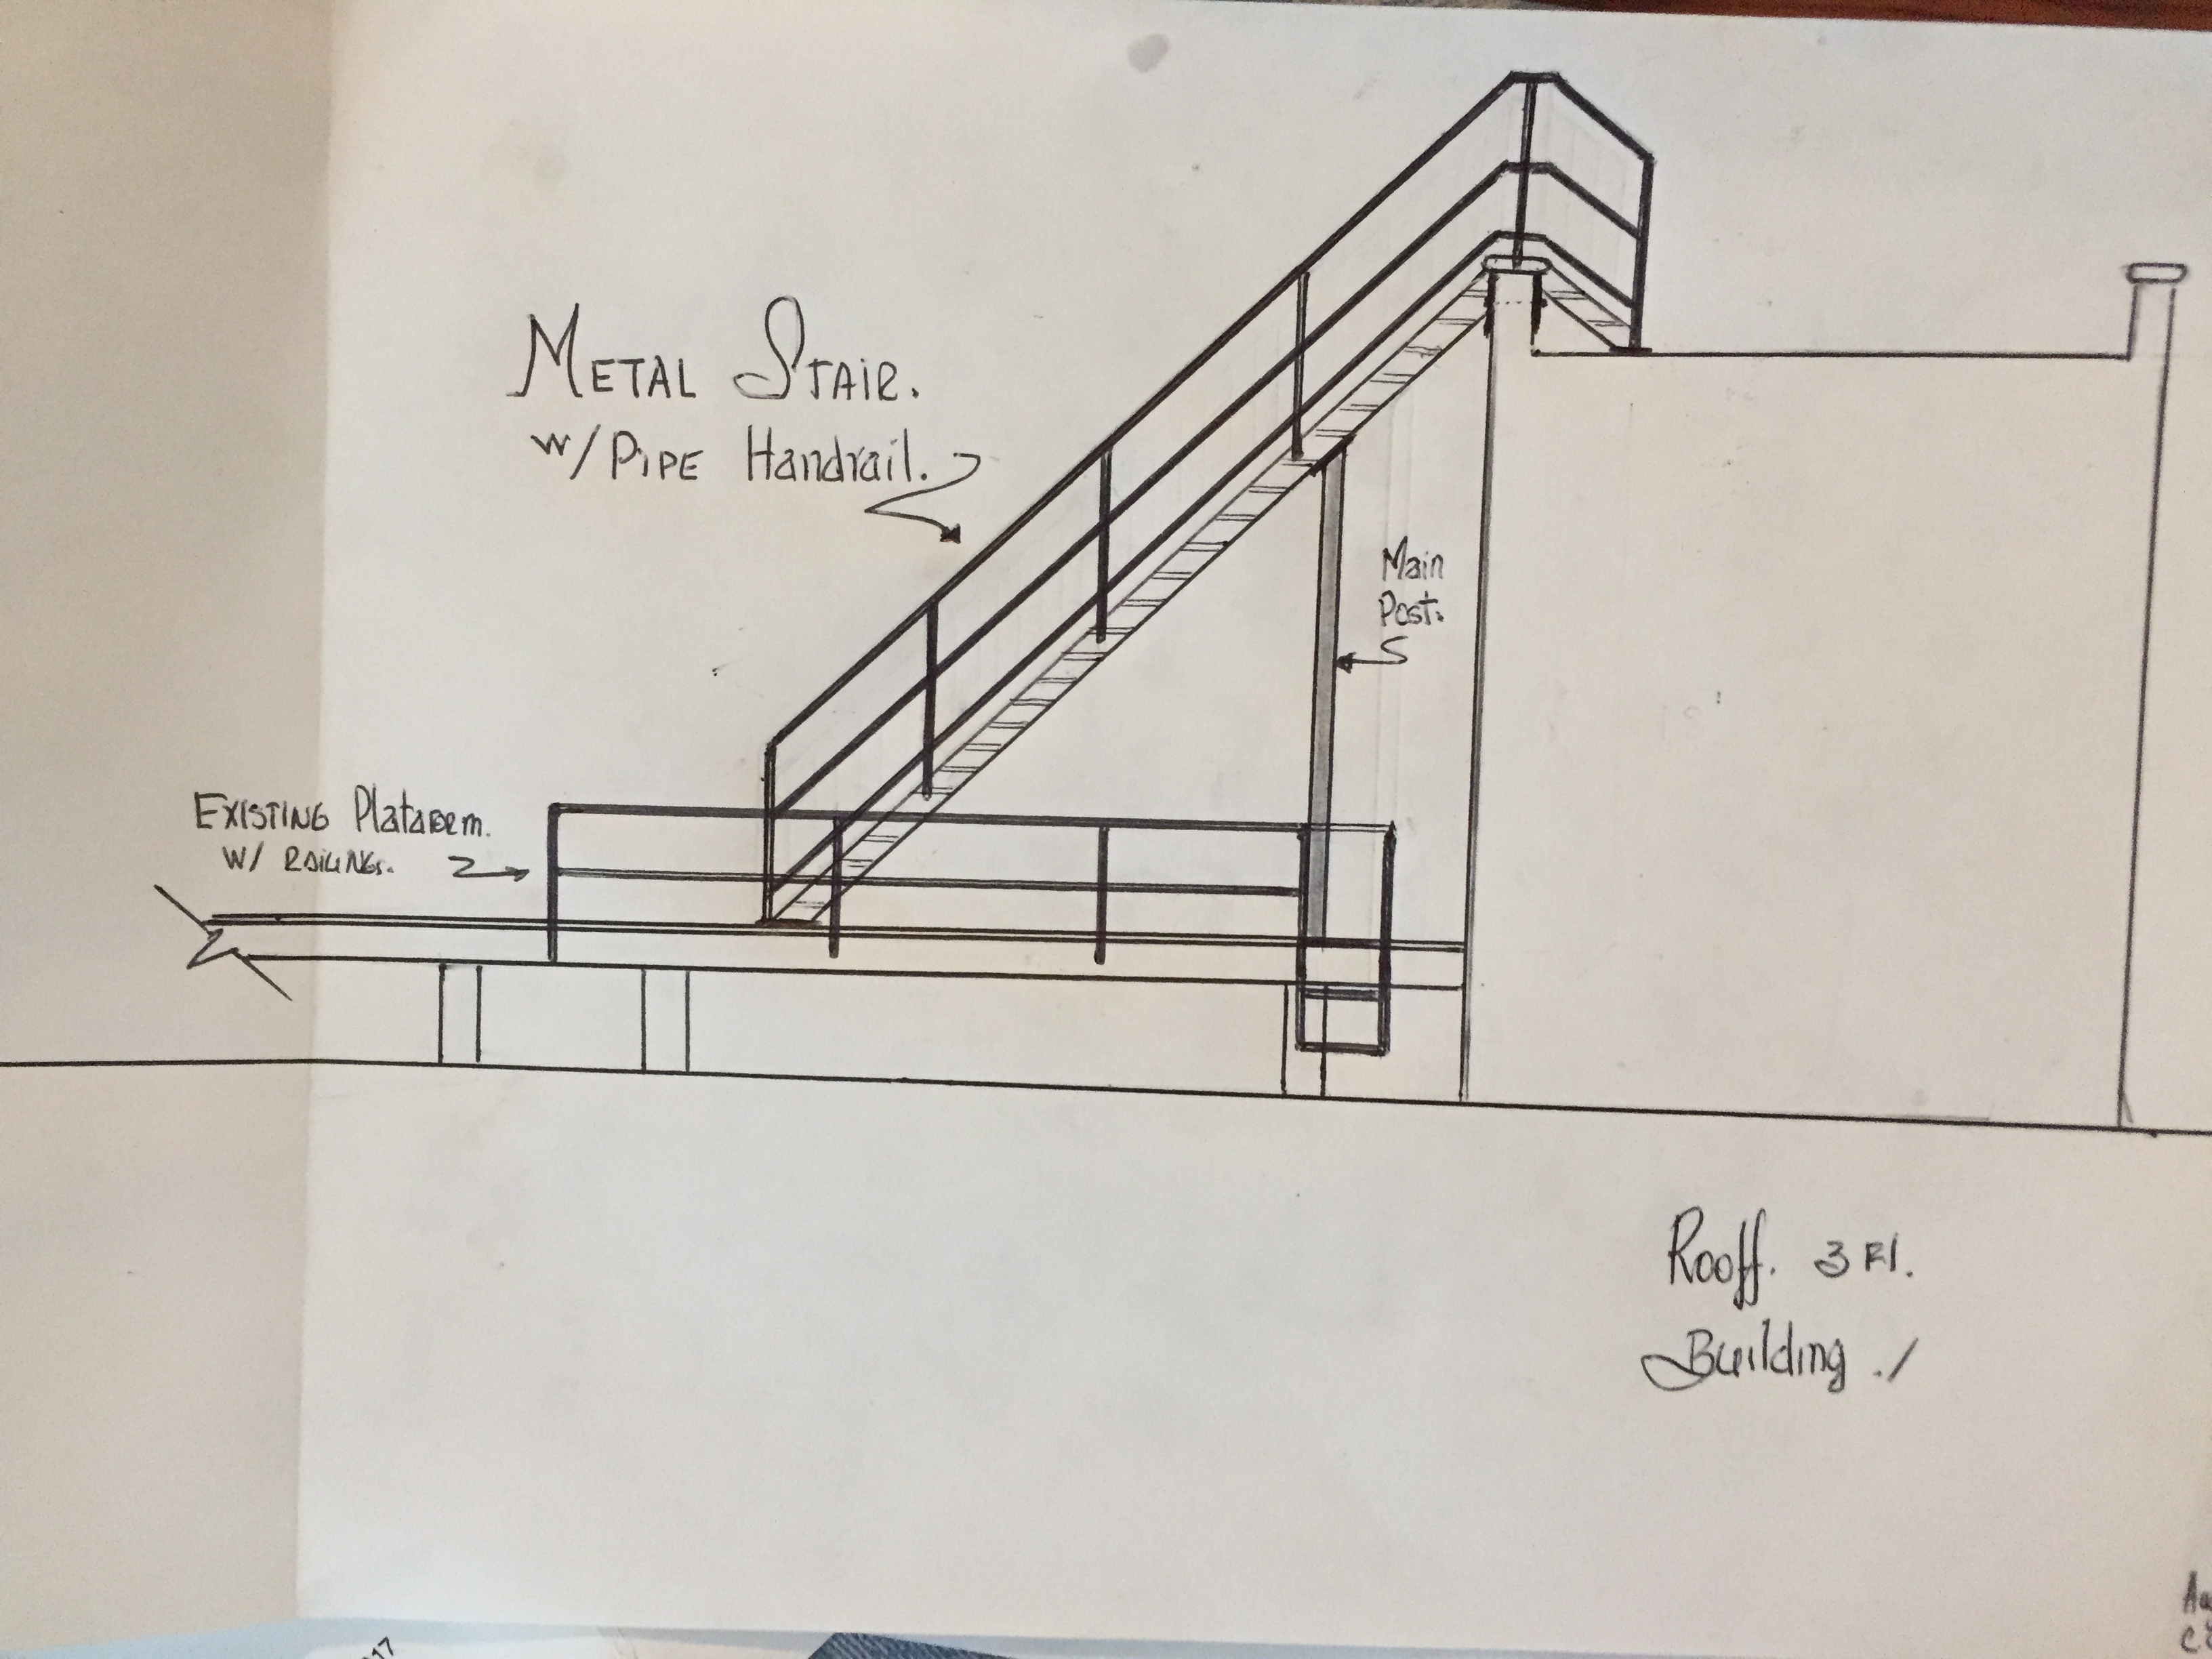 METAL STAIR.
W/ PIPE Handrail.
Main
Post.
EXISTING Platform.
W/ RAILINGS.
Rooff. 3 Fl.
Building.